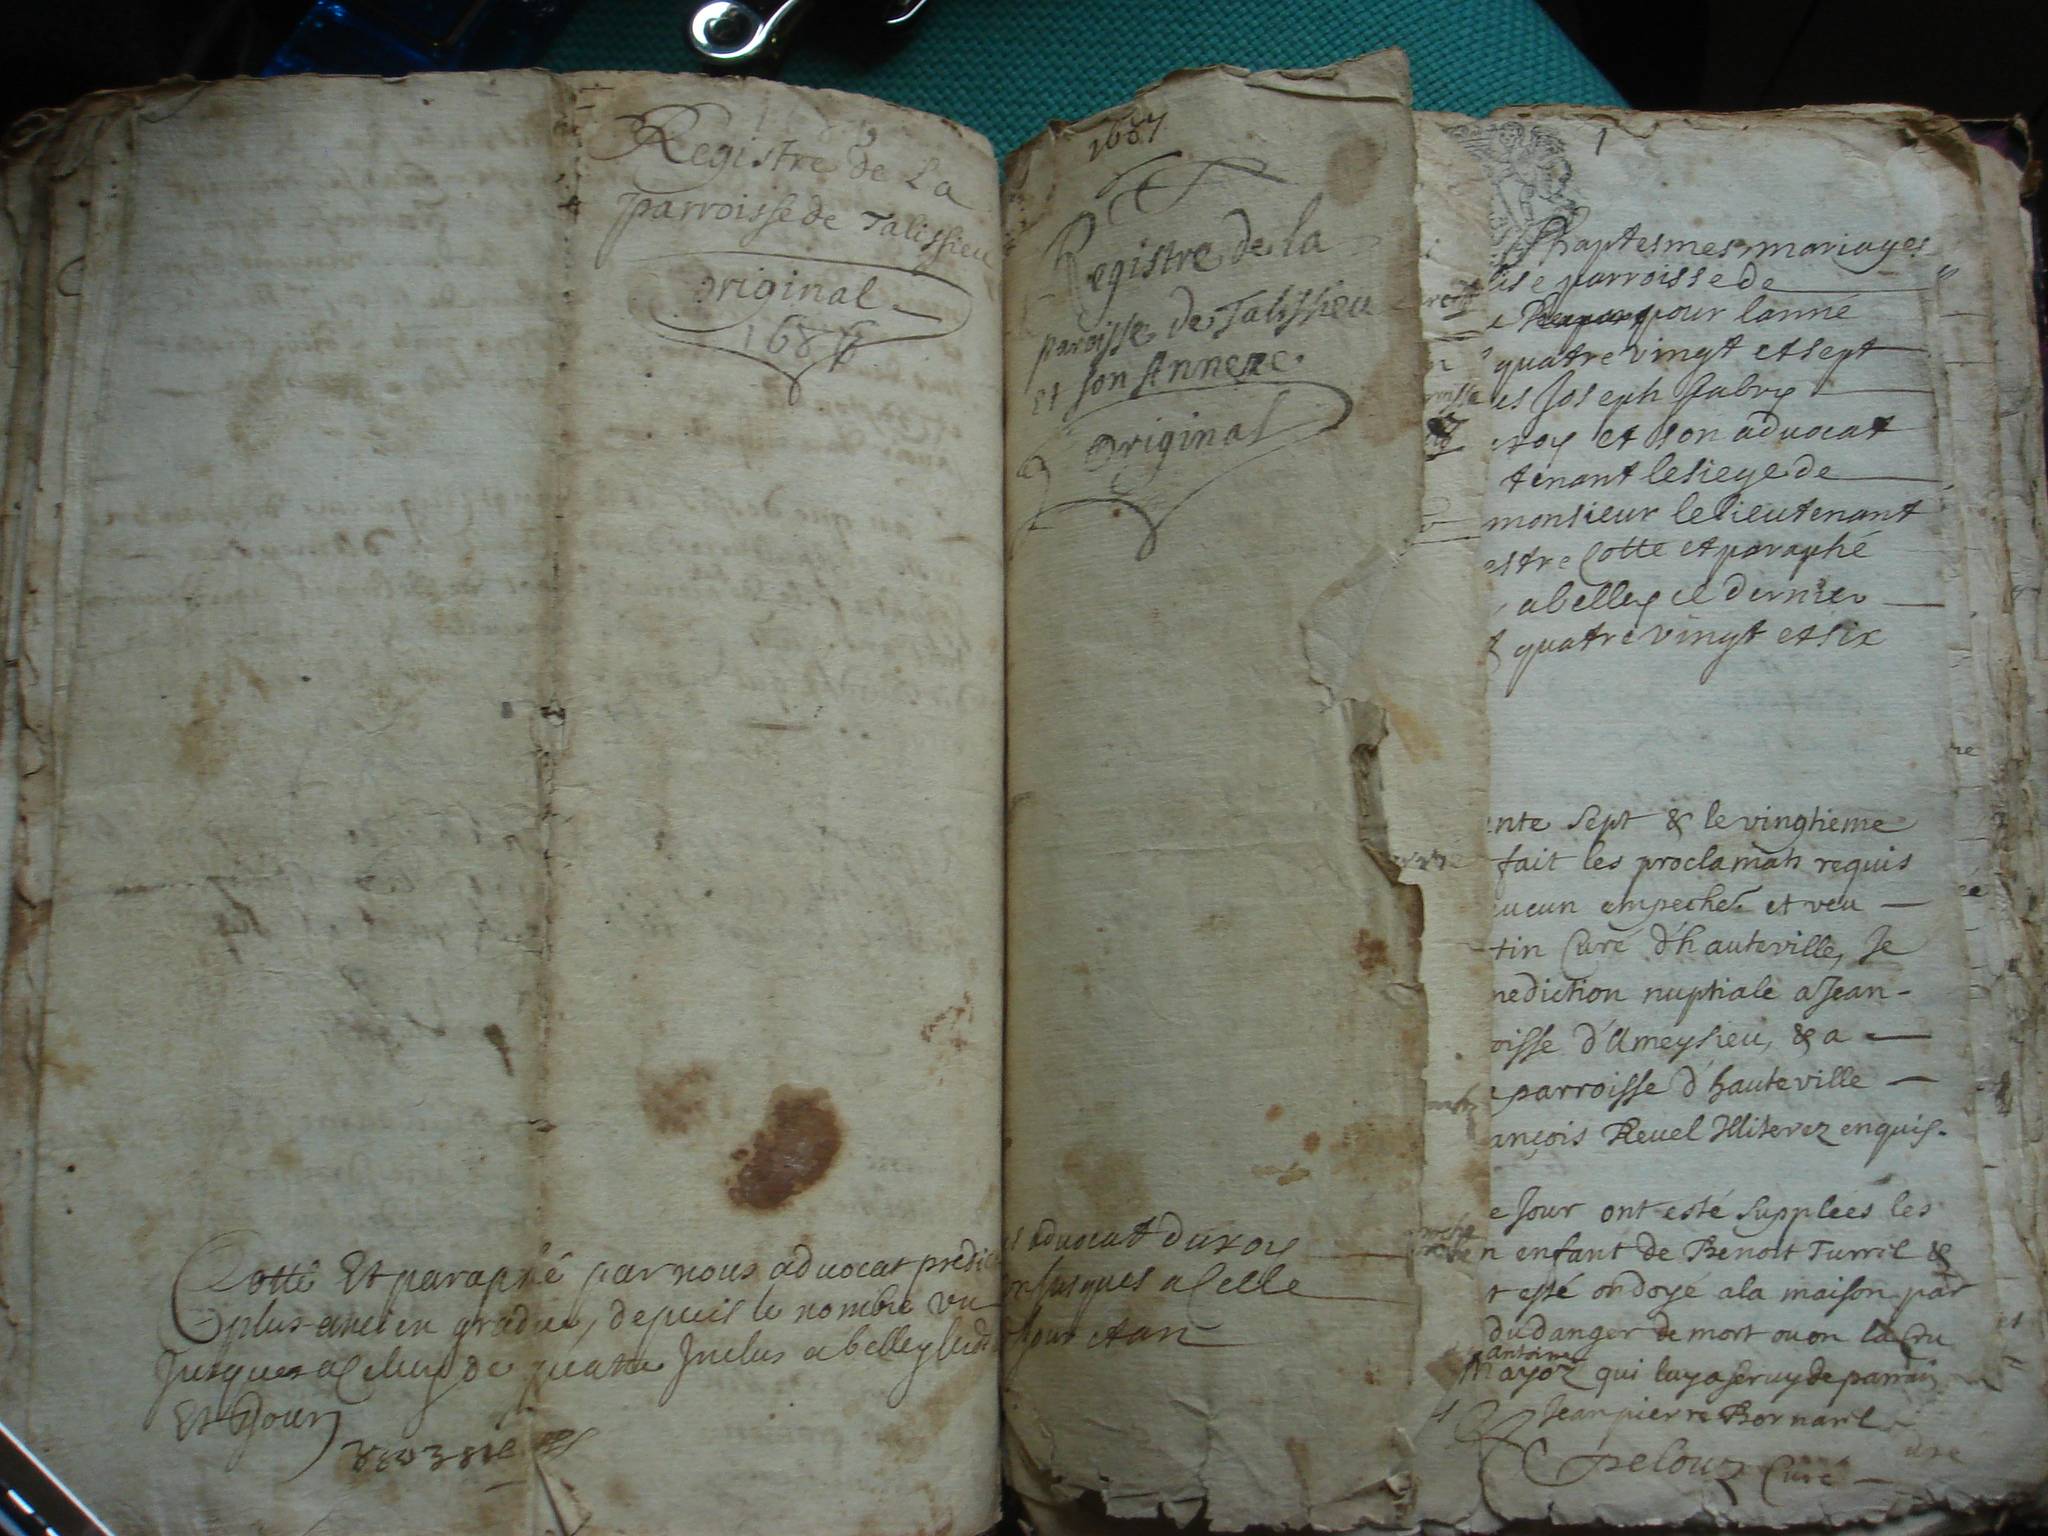 Registre de La
parroisse de Talissieu
original
168
Cotté Et paraphé par nous advocat
plus ancien gradué, depuis le nombre un
Jusques a Celluy de quatre Inclus a belley
Et Jour
1687
Registre de la
paroisse de Talissieu
et son Annexe.
Original
advocat du roy
Jusques a Celle
Jour et an
1
baptesmes mariages
lise parroisse de
pour lanné
quatre vingt et sept
es Joseph fabry
roy et son advocat
tenant le siege de
monsieur le lieutenant
estre Cotté et paraphé
a belley ce dernier
quatre vingt et six
ente sept & le vingtieme
fait les proclamaõns requis
aucun empeche. et veu
tin Curé d'hauteville, Je
nediction nuptiale a Jean-
oisse d'Ameysieu, & a
parroisse d'hauteville
ançois Revel Illiterez enquis.
e Jour ont esté supplées les
n enfant de Benoit Turril &
t esté ondoyé a la maison par
du danger de mort ou on la cru
antoine
Mayoz qui luy a servy de parrain
Jean pierre Bornard
Pelouz Curé